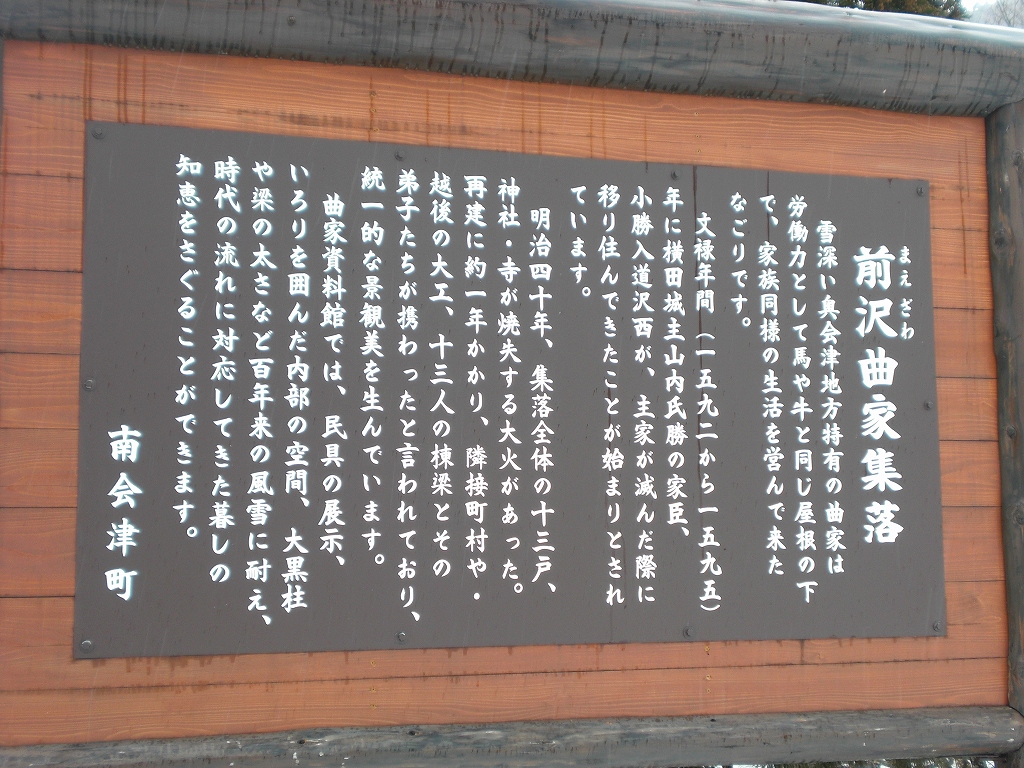 まえざわ
前沢曲家集落
雪深い奥会津地方持有の曲家は
労働力として馬や牛と同じ屋根の下
で、家族同様の生活を営んで来た
なごりです。
文禄年間（一五九二から一五九五）
年に横田城主山内氏勝の家臣、
小勝入道沢西が、主家が滅んだ際に
移り住んできたことが始まりとされ
ています。
明治四十年、集落全体の十三戸、
神社・寺が焼失する大火があった。
再建に約一年かかり、隣接町村や・
越後の大工、十三人の棟梁とその
弟子たちが携わったと言われており、
統一的な景観美を生んでいます。
曲家資料館では、民具の展示、
いろりを囲んだ内部の空間、大黒柱
や梁の太さなど百年来の風雪に耐え、
時代の流れに対応してきた暮しの
知恵をさぐることができます。
南会津町